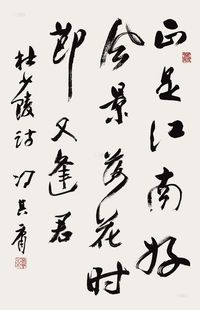 正是江南好
风景落花时
節又逢君
杜少陵诗 冯其庸